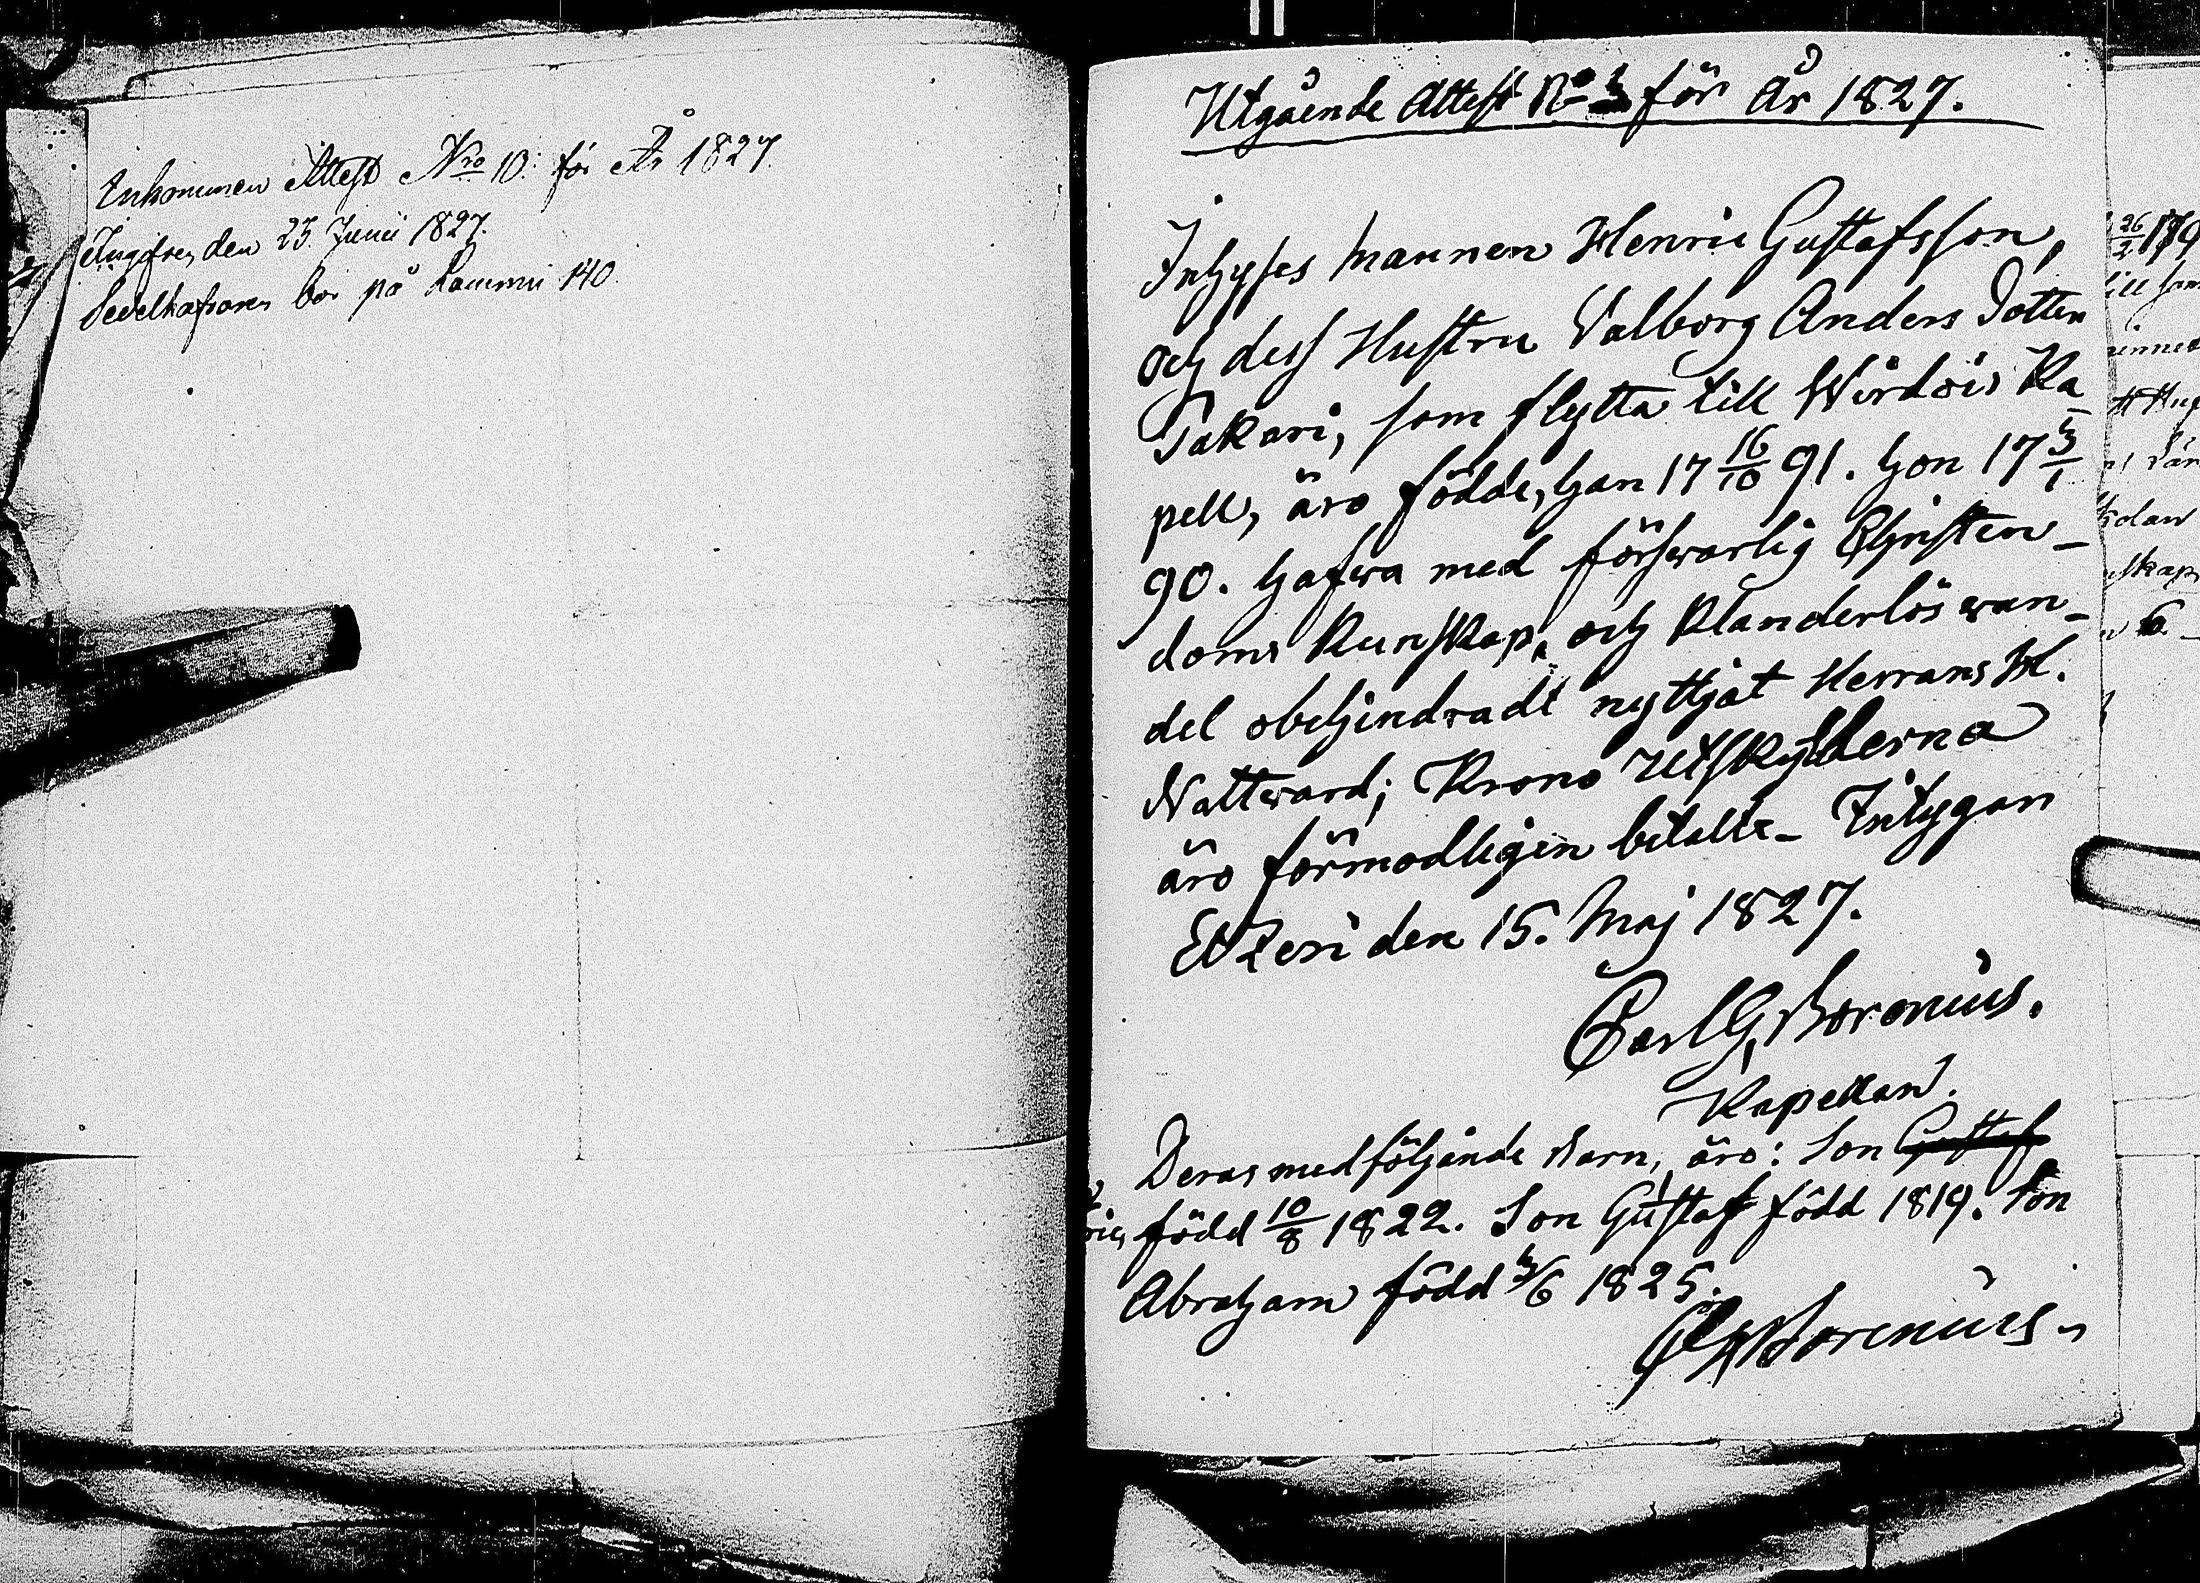 Inkommen Attest Nro 10: för År 1827.
Ingifven den 23. Junii 1827.
Sedelhafvaren bor på Lammi 140.
Utgående Attest No 3 för År 1827.
Inhyses mannen Henric Gustafsson,
och dess Hustru Valborg Anders Dotter
Takari, som flytta till Wirdois Ka-
pell, äro födde, han 17 16/10 91. hon 17 3/1
90. hafwa med förswarlig Christen-
doms Kunskap, och Klanderlös wan-
del obehindradt nyttjat Herrans H.
Nattward; Krono Utskylderna
äro förmodligen betallte_ Intygan
Etzeri den 15. Maj 1827.
Carl G. Borenius.
Kapellan.
Deras medföljande Barn, äro: Son Gustaf
född 10/8 1822. Son Gustaf född 1819. Son
Abraham född 3/6 1825.
CGBorenius